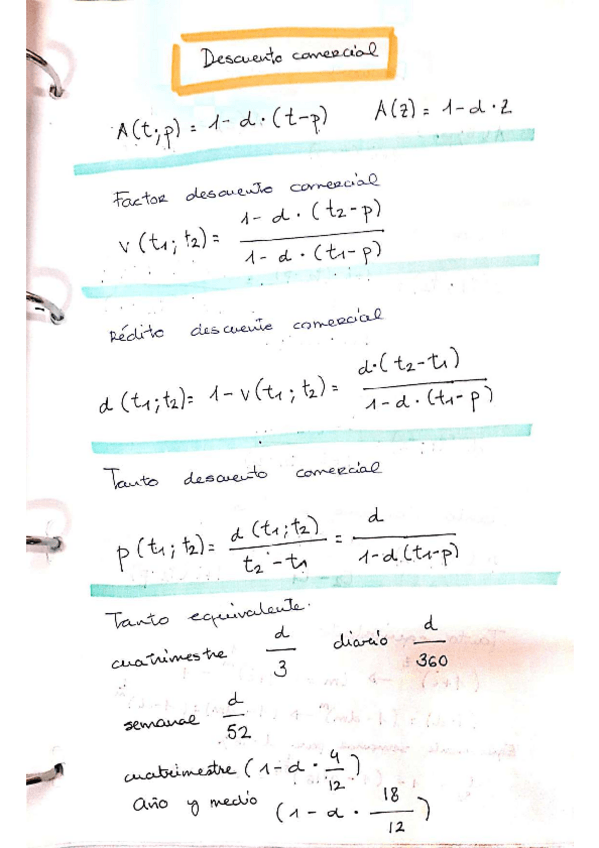 Descuento comercial
A(t;p) = 1 - d · (t-p)    A(z) = 1 - d · z
Factor descuento comercial
v(t1; t2) = (1 - d · (t2-p)) / (1 - d · (t1-p))
Rédito descuento comercial
d(t1;t2) = 1 - v(t1; t2) = (d·(t2-t1)) / (1 - d · (t1-p))
Tanto descuento comercial
p(t1; t2) = (d(t1;t2)) / (t2 - t1) = d / (1-d(t1-p))
Tanto equivalente.
cuatrimestre d/3    diario d/360
semanal d/52
cuatrimestre (1-d · 4/12)
Año y medio (1 - d · 18/12)